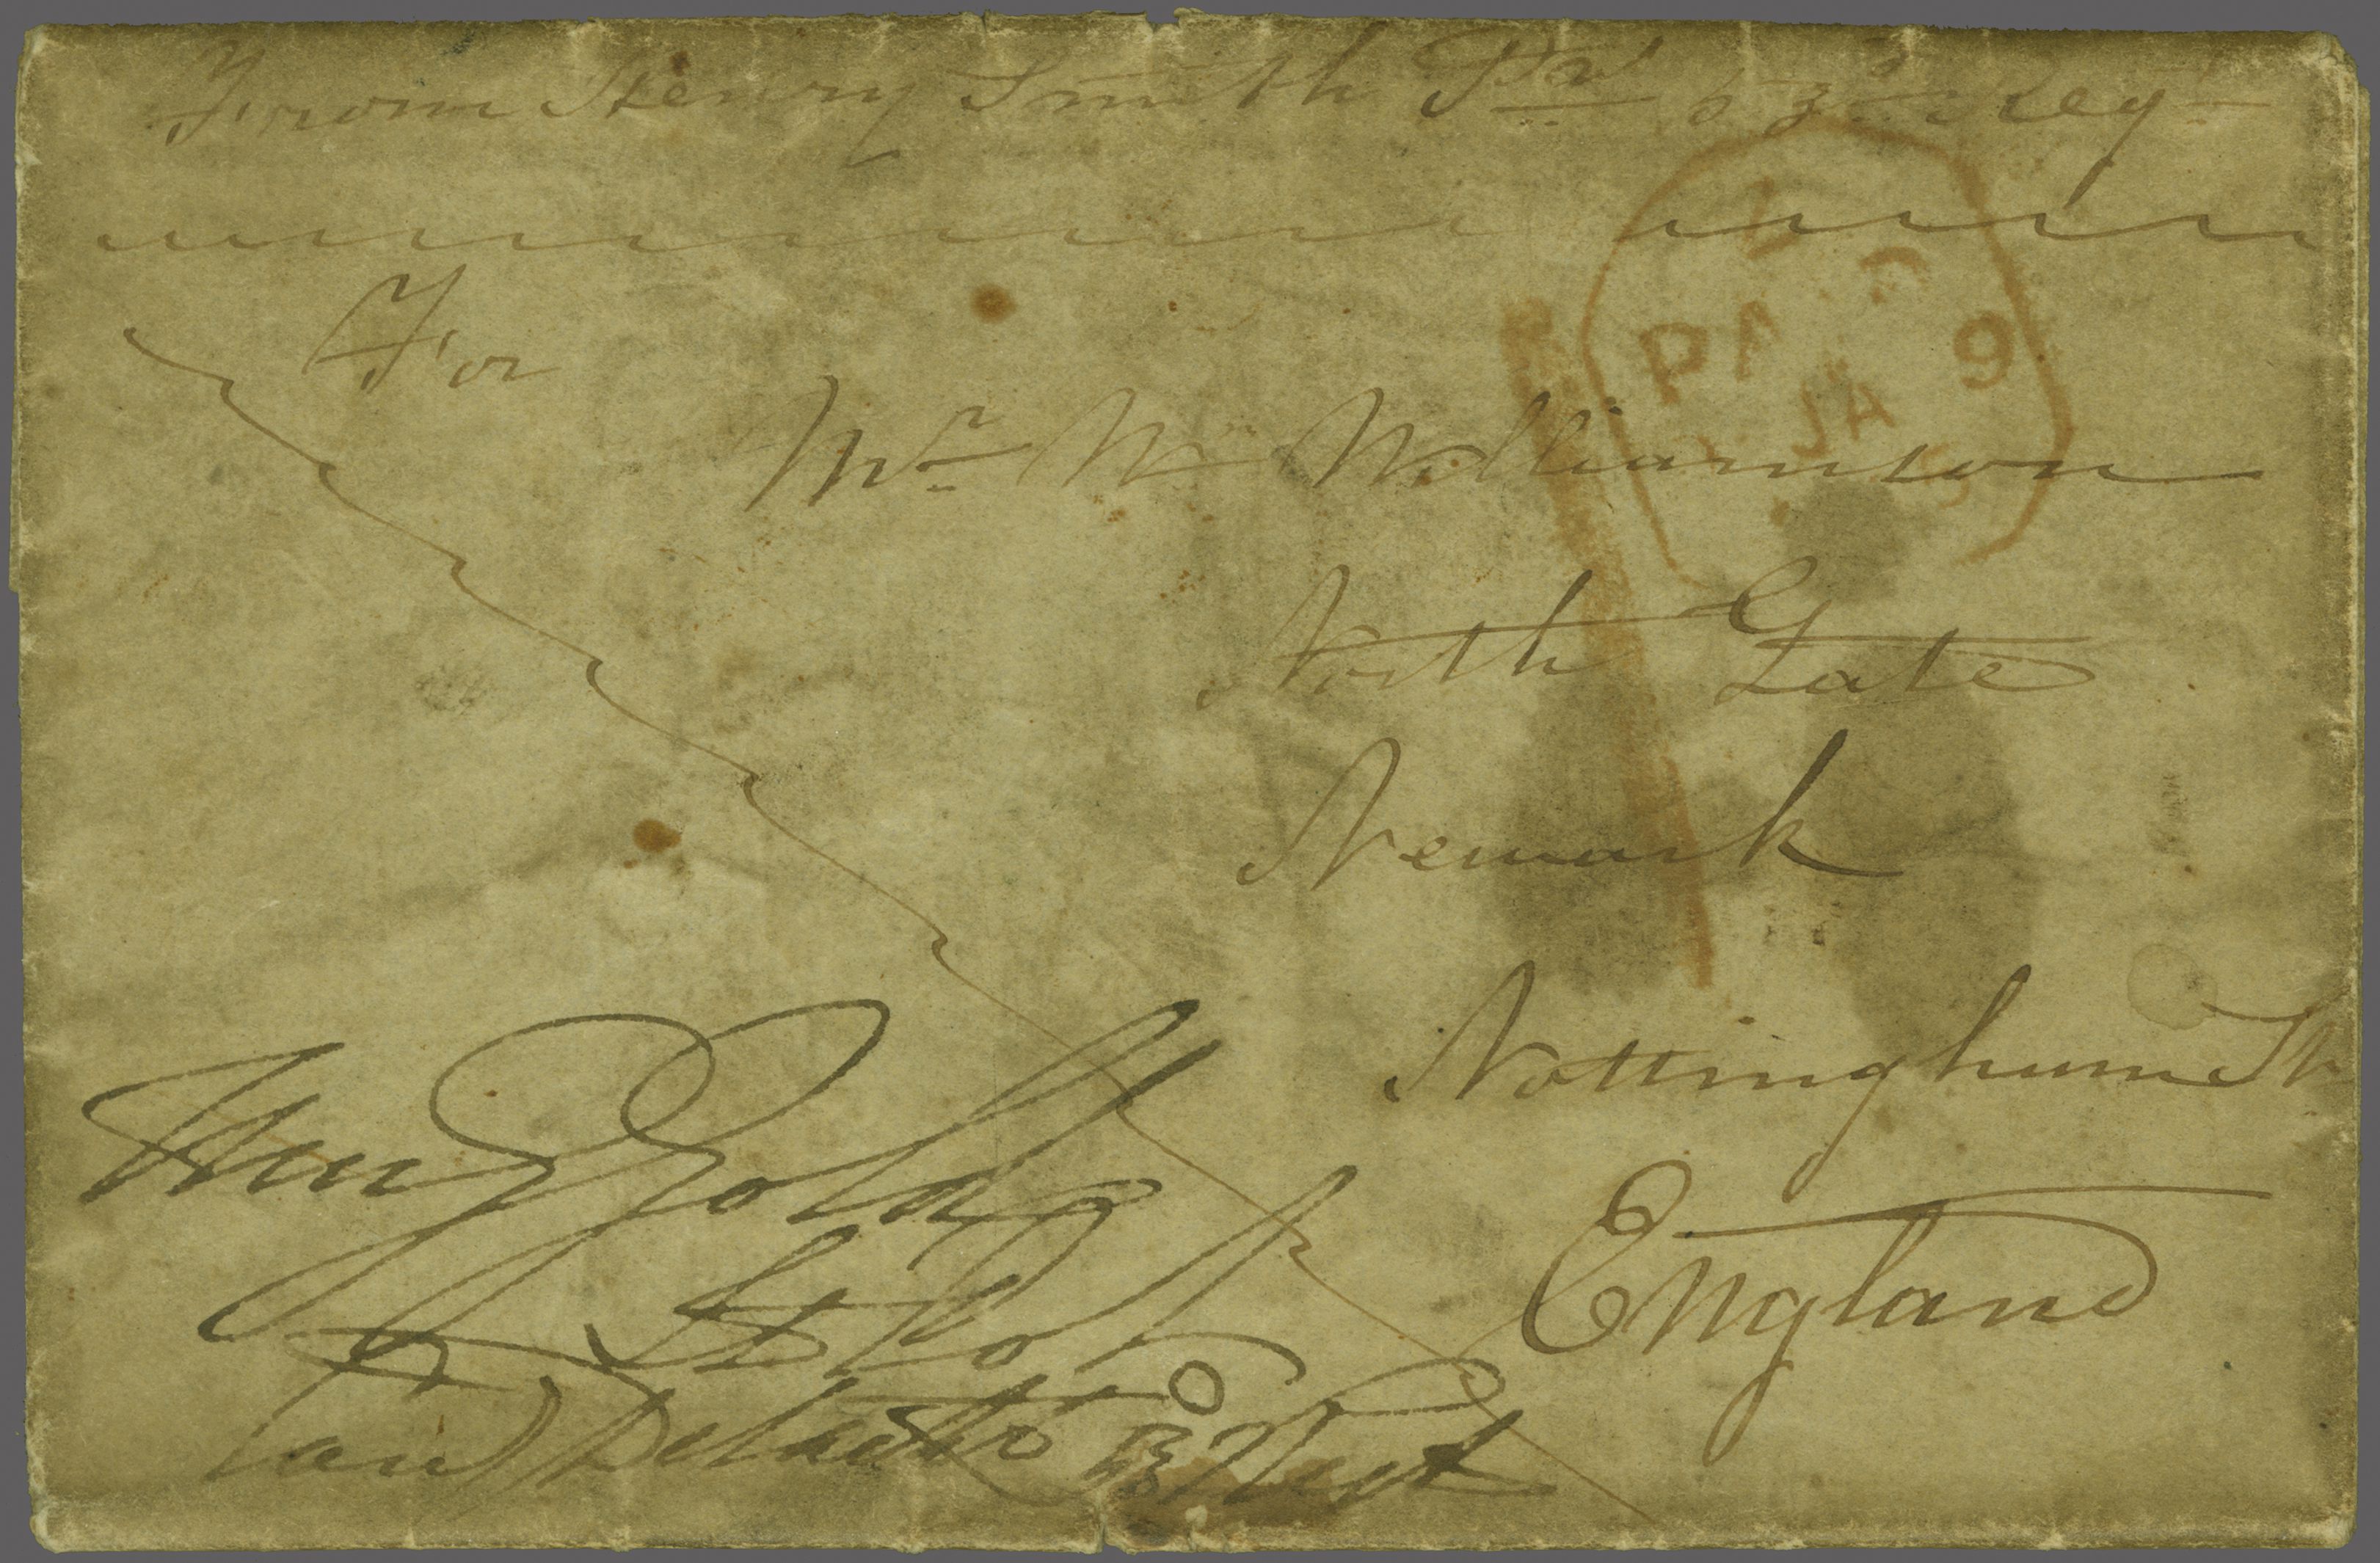 From Henry Smith Pvt 53rd Regt
For
Mr Wm Williamson
North Gate
Newark
Nottingham Sh
England
PAID
JA 9
Lt Col
53 Regt